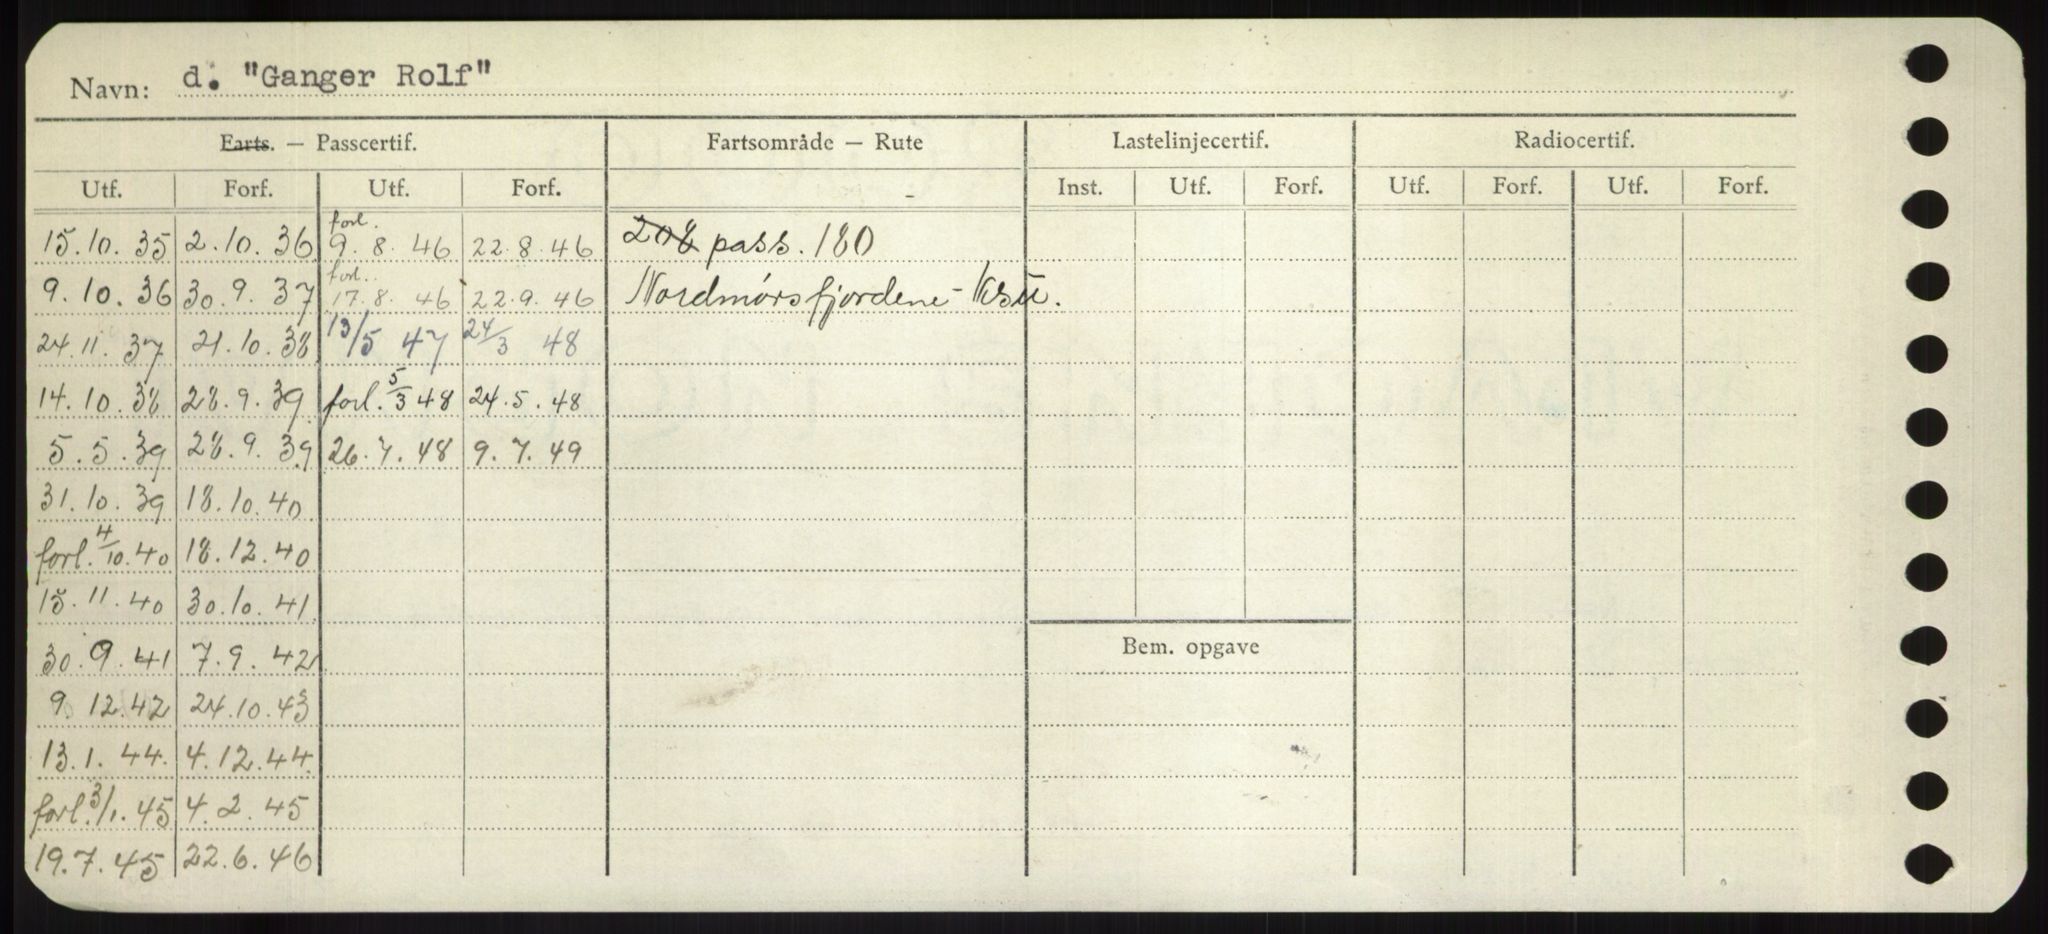 Navn: d. "Ganger Rolf"
Farts. — Passcertif. Fartsområde — Rute Lastelinjecertif. Radiocertif.
Utf. Forf. Utf. Forf. Inst. Utf. Forf. Utf. Forf. Utf. Forf.
15.10.35 2.10.36 forl. 9.8.46 22.8.46 208 pass. 180
9.10.36 30.9.37 forl. 17.8.46 22.9.46 Nordmørsfjordene - Ksu.
24.11.37 21.10.38 13/5 47 24/3 48
14.10.38 28.9.39 forl. 5/3 48 24.5.48
5.5.39 28.9.39 26.7.48 9.7.49
31.10.39 18.10.40
forl. 4/10.40 18.12.40
15.11.40 30.10.41
30.9.41 7.9.42 Bem. opgave
9.12.42 24.10.43
13.1.44. 4.12.44
forl. 3/1.45 4.2.45
19.7.45 22.6.46